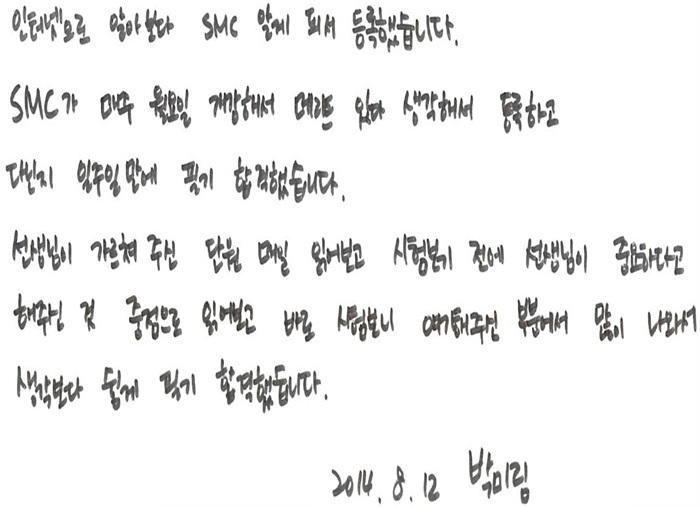 인터넷으로 알아보다 SMC 알게 되서 등록했습니다.
SMC가 매주 월요일 개강해서 메리트 있다 생각해서 등록하고
다닌지 일주일만에 필기 합격했습니다.
선생님이 가르쳐 주신 단원 매일 읽어보고 시험보기 전에 선생님이 중요하다고
해주신 것 중점으로 읽어보고 바로 시험보니 얘기해주신 부분에서 많이 나와서
생각보다 쉽게 필기 합격했습니다.
2014. 8. 12 박미림